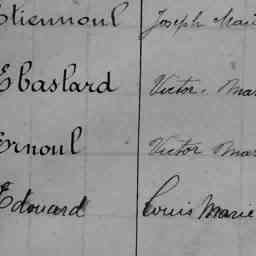 Etiennoul Joseph Mari
Ebastard Victor, Mar
Ernoul Victor Mar
Edouard Louis Marie